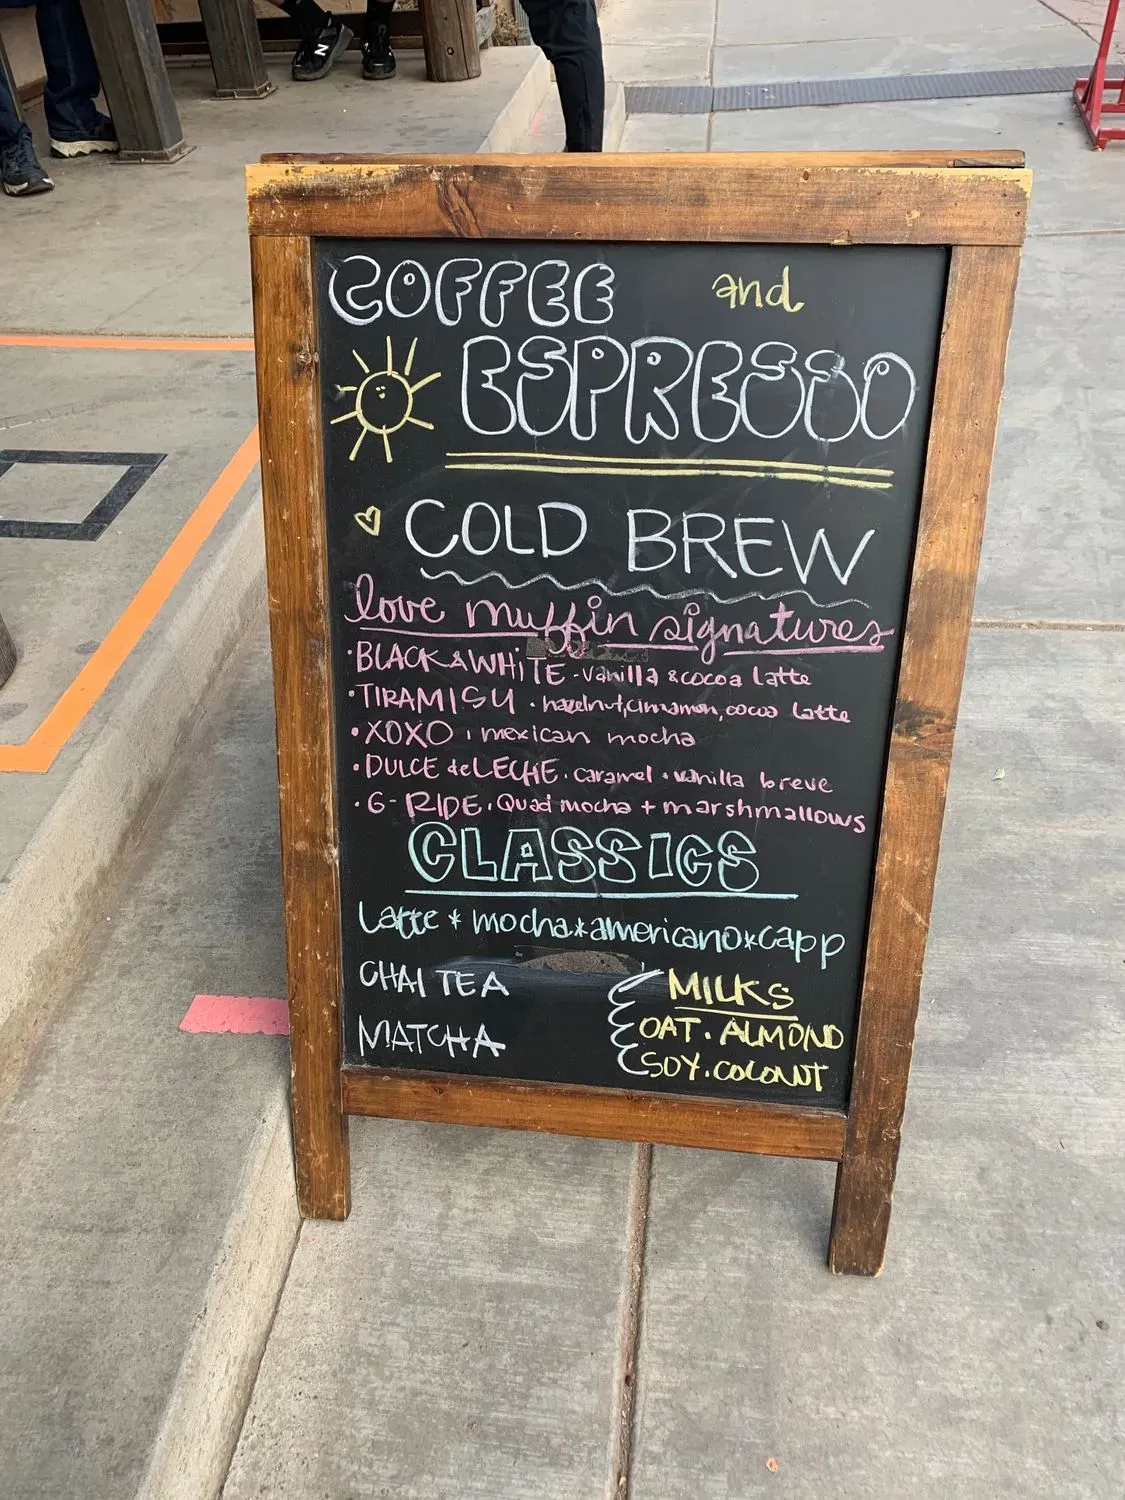 COFFEE and
ESPRESSO
COLD BREW
love muffin signatures
·BLACK & WHITE - vanilla & cocoa latte
·TIRAMISU · hazelnut, cinnamon, cocoa latte
·XOXO · mexican mocha
·DULCE de LECHE · caramel + vanilla breve
·G-RIDE · Quad mocha + marshmallows
CLASSICS
Latte * mocha * americano * capp
CHAI TEA
MATCHA
MILKS
OAT · ALMOND
SOY · COCONUT
N